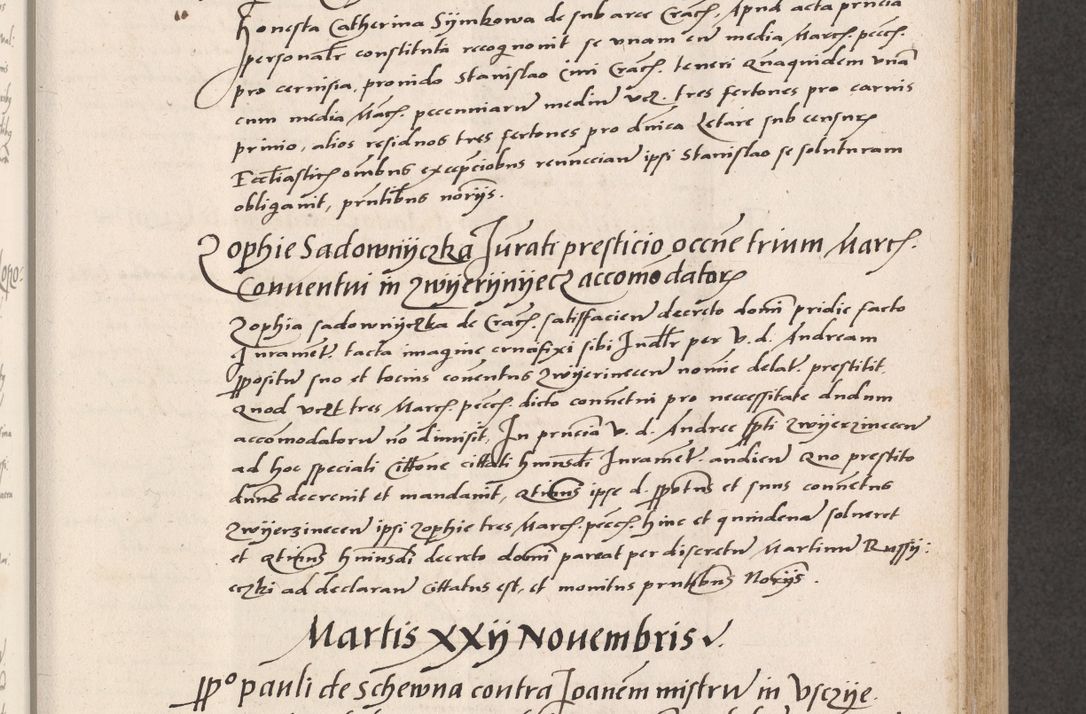 Honesta Catherina Sijmkowa de sub arce Crac. Apud acta prncia
personalr constituta recognouit se unam cu media Marc. pecc.
pro ceruisia, prouido Stanislao Ciui Crac. teneri Quaquidem una
cum media Marc. pecunniaru mediu vcz. tres fertones pro carnis
priuio, alios residuos tres fertones pro dnica Letare sub censur
Eccliastic omnbus excepciobus renncciau ipsi Stanislao se soluturam
obligauit, prntibus norijs.
Zophie Sadownijczka Jurati presticio occne trium Marc.
Conuentui in Zwijerijnijecz accomodator
Zophia sadownijczka de Crac. satisfacien decreto domi pridie facto
Juramet. tacta imagine crucifixi sibi Judlr per V. d. Andream
ppositu suo et tocius conuentus Zwijerinecen nomine delat. prestitit.
Quod vczt tres Marc. pecc. dicto conuetui pro neccessitate dudum
accomodatoru no dimisit, In prncia v. d. Andree ppti Zwijerzinecen
ad hoc speciali Cittone cittati hmusdi Juramet. audien Quo prestito
dnus decreuit et mandauit, Qtinus ipse d. ppotus et suus conuetus
Zwijerzinecen ipsi Zophie tres Marc. pecc. hinc et quindena solueret
et Qtinus hmusdi decreto domi pareat per discretu Martinu Russij:
eczki ad declaran cittatus est, et monitus prntibus Norijs.
Martis XXIJ Nouembris
ppo pauli de Schewna contra Joanem mistru in Vsczije.